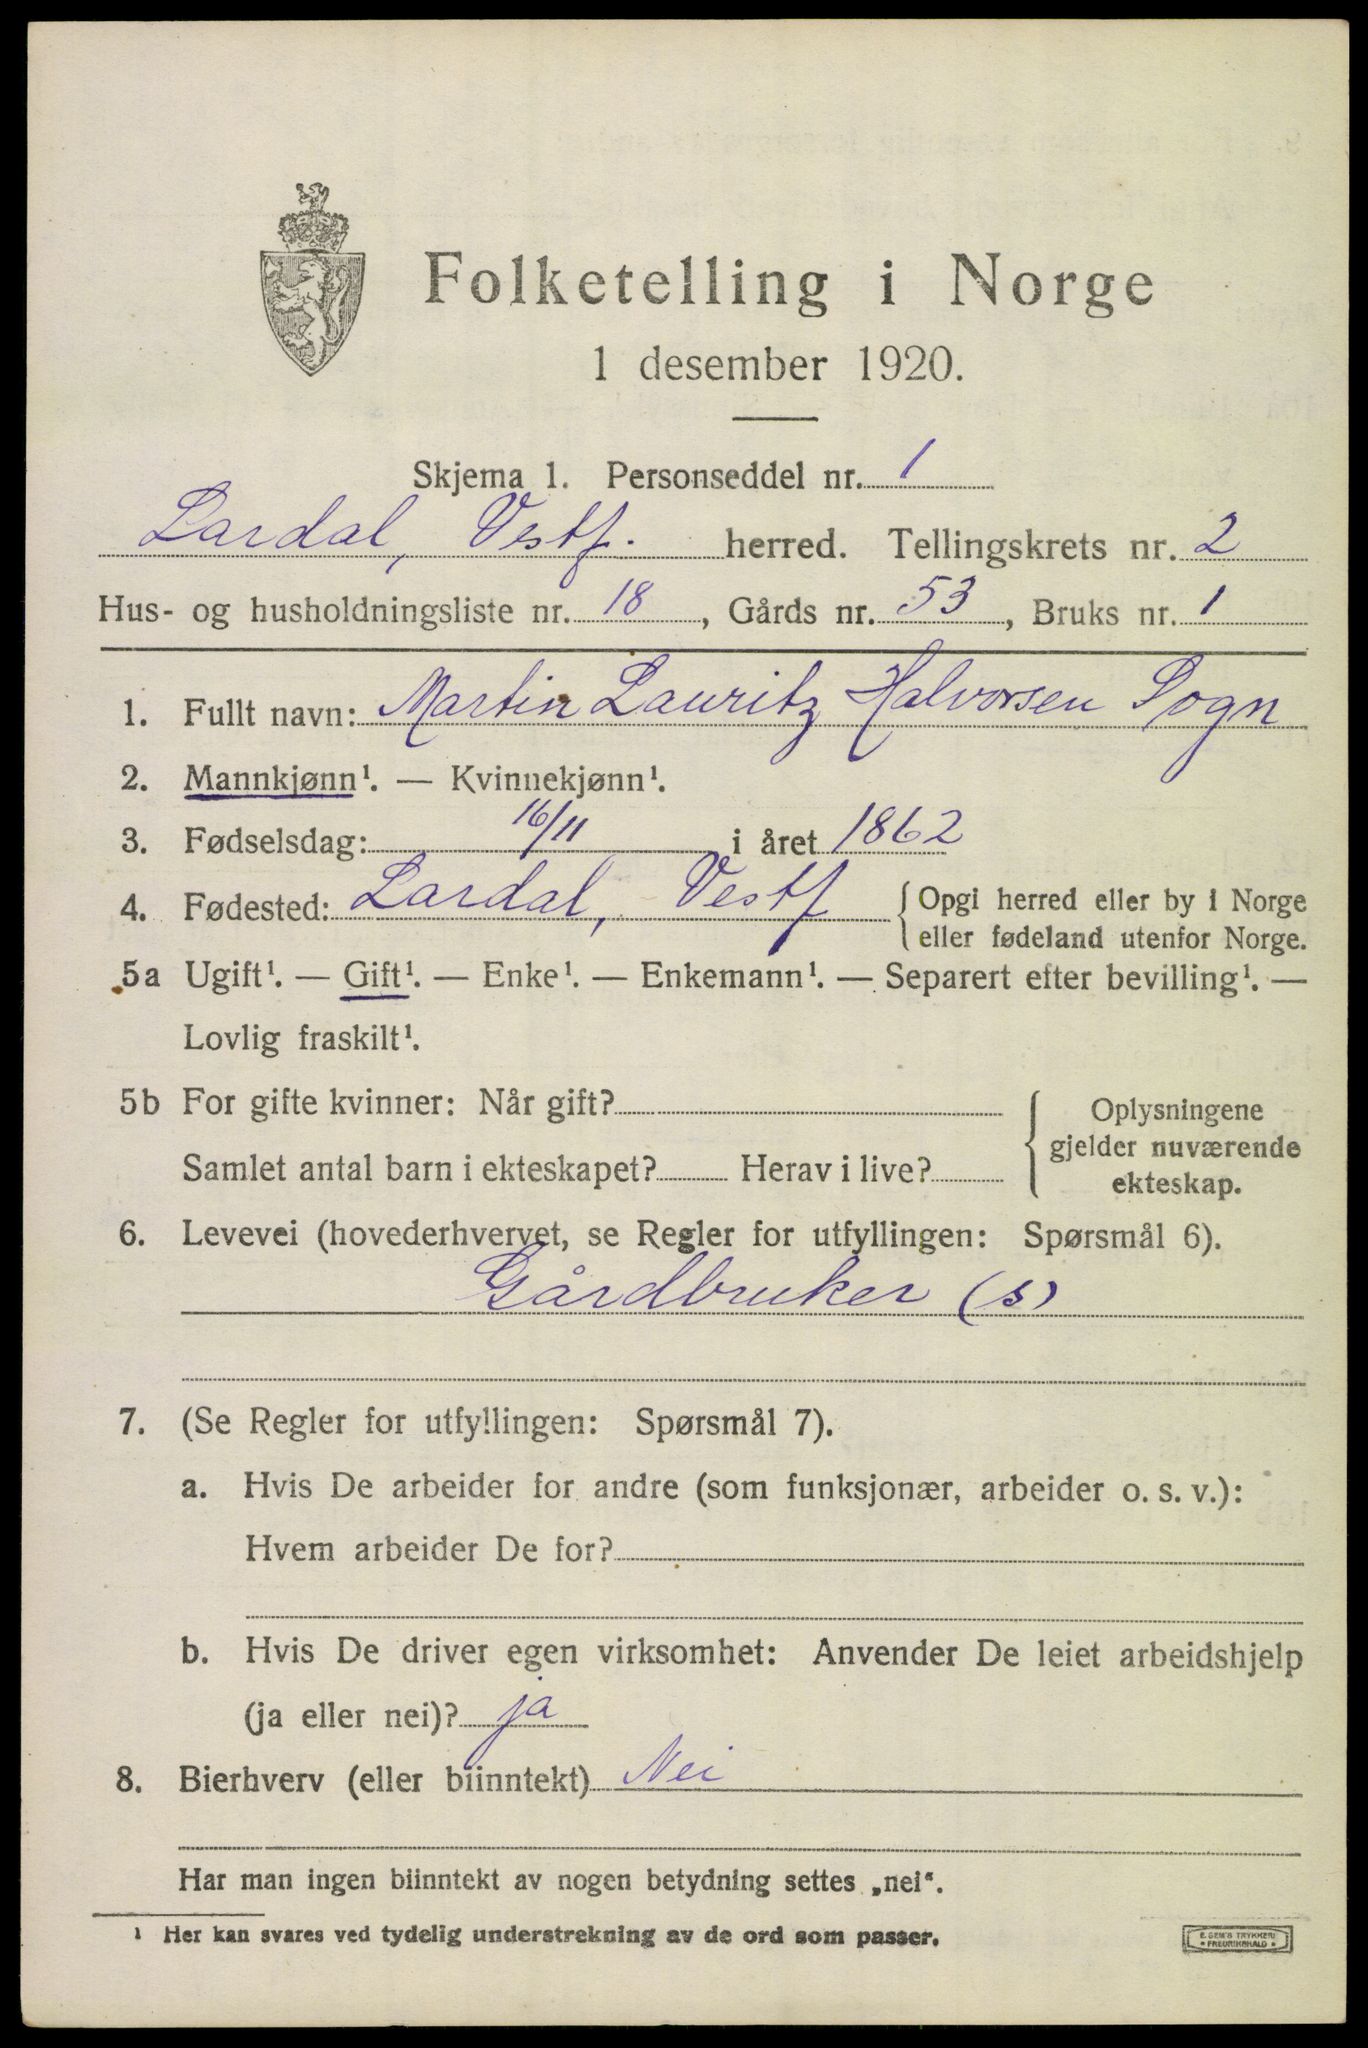 Folketelling i Norge
1 desember 1920.
Skjema 1. Personseddel nr. 1
Lardal, Vestf. herred. Tellingskrets nr. 2
Hus- og husholdningsliste nr. 18, Gårds nr. 53, Bruks nr. 1
1. Fullt navn: Martin Lauritz Halvorsen Sogn
2. Mannkjønn¹. — Kvinnekjønn¹.
3. Fødselsdag: 16/11 i året 1862
4. Fødested: Lardal, Vestf { Opgi herred eller by i Norge
eller fødeland utenfor Norge.
5a Ugift¹. — Gift¹. — Enke¹. — Enkemann¹. — Separert efter bevilling¹. —
Lovlig fraskilt¹.
5b For gifte kvinner: Når gift?
Samlet antal barn i ekteskapet? Herav i live?
{ Oplysningene
gjelder nuværende
ekteskap.
6. Levevei (hovederhvervet, se Regler for utfyllingen: Spørsmål 6).
Gårdbruker (s)
7. (Se Regler for utfyllingen: Spørsmål 7).
a. Hvis De arbeider for andre (som funksjonær, arbeider o. s. v.):
Hvem arbeider De for?
b. Hvis De driver egen virksomhet: Anvender De leiet arbeidshjelp
(ja eller nei)? ja
8. Bierhverv (eller biinntekt) Nei
Har man ingen biinntekt av nogen betydning settes „nei“.
¹ Her kan svares ved tydelig understrekning av de ord som passer.
E. SEM'S TRYKKERI
• FREDRIKSHALD •